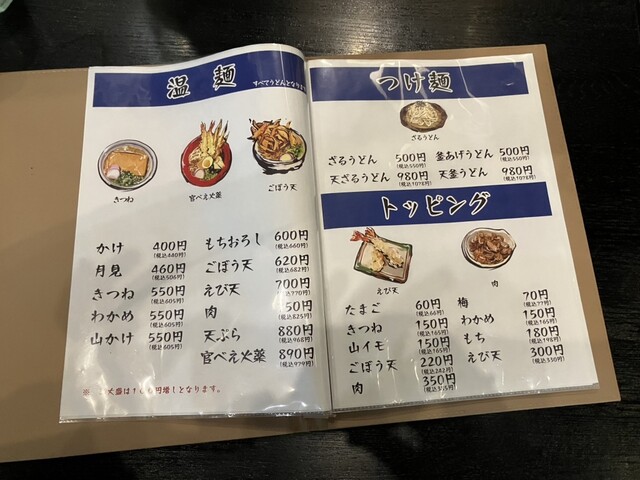 温 麺 すべてうどんとなります
きつね
官べえ火薬
ごぼう天
かけ 400円 (税込440円)
月見 460円 (税込506円)
きつね 550円 (税込605円)
わかめ 550円 (税込605円)
山かけ 550円 (税込605円)
もちおろし 600円 (税込660円)
ごぼう天 620円 (税込682円)
えび天 700円 (税込770円)
肉 50円 (税込825円)
天ぷら 880円 (税込968円)
官べえ火薬 890円 (税込979円)
大盛は100円増しとなります。
つけ麺
ざるうどん
ざるうどん 500円 (税込550円) 釜あげうどん 500円 (税込550円)
天ざるうどん 980円 (税込1078円) 天釜うどん 980円 (税込1078円)
トッピング
えび天
肉
たまご 60円 (税込66円)
きつね 150円 (税込165円)
山イモ 150円 (税込165円)
ごぼう天 220円 (税込242円)
肉 350円 (税込385円)
梅 70円 (税込77円)
わかめ 150円 (税込165円)
もち 180円 (税込198円)
えび天 300円 (税込330円)